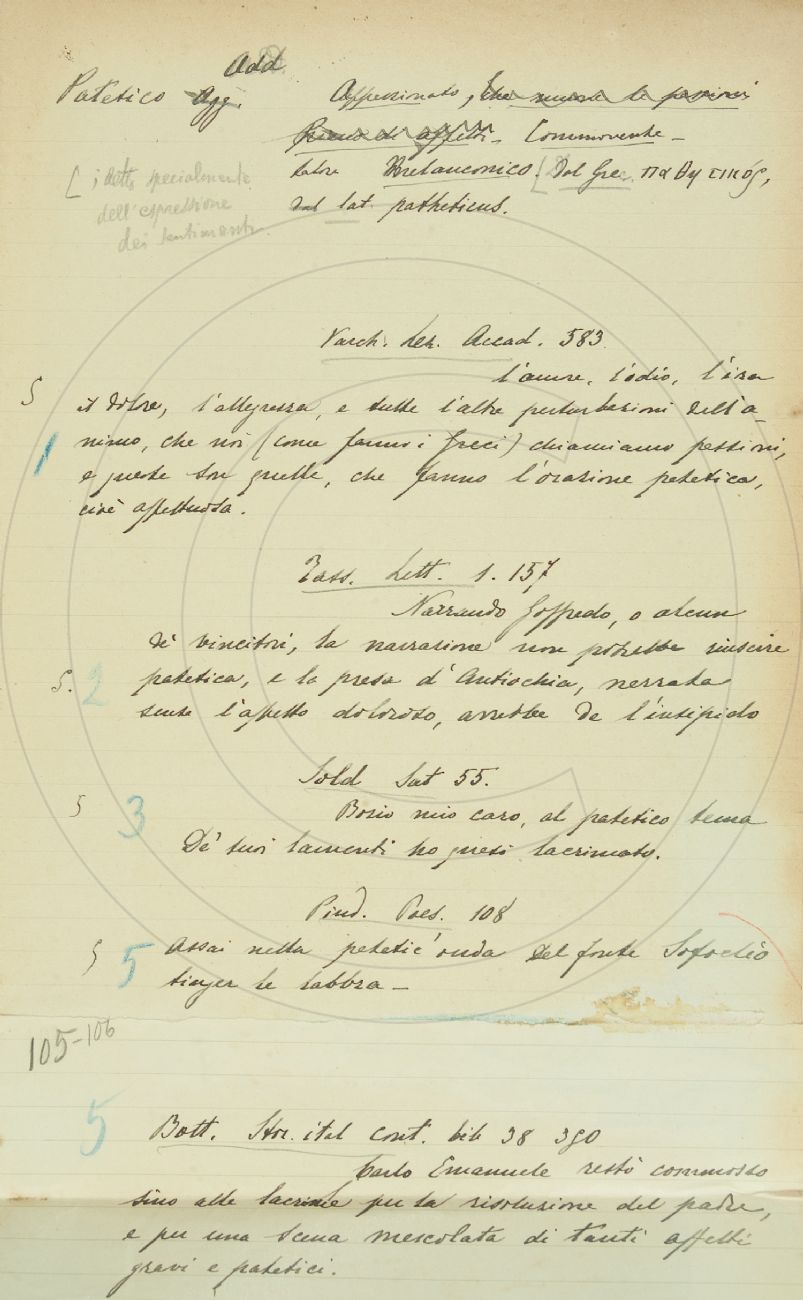 Add.
Patetico Agg. Appassionato, che muove le passioni
Pieno di affetti. Commovente –
talora Melanconico. Dal Gre. παθητικός,
dal lat. patheticus.
[; detto specialmente
dell'espressione
dei sentimenti.
Varch. Lez. Accad. 583.
l'amore, l'odio, l'ira
il dolore, l'allegrezza, e tutte l'altre perturbazioni dell'a-
5
1
nimo, che noi (come fanno i Greci) chiamiamo passioni,
e queste son quelle, che fanno l'orazione patetica,
cioè affettuosa.
Tass. Lett. 1. 157
Narrando Goffredo, o alcun
de' vincitori, la narrazione non potrebbe riuscire
5. 2 patetica, e la presa d'Antiochia, narrata
senza l'affetto doloroso, avrebbe de l'insipido
Sold Sat 55.
5 3 Bosio mio caro, al patetico tema
De' tuoi lamenti ho quasi lacrimato.
Pind. Poes. 108
5 5 Assai nella patetic'onda del fonte Sofocleo
tinger le labbra –
105-106
5
Bott. Stor. ital cont. lib 38 390
Carlo Emanuele restò commosso
sino alle lacrime per la risoluzione del padre,
e per una scena mescolata di tanti affetti
gravi e patetici.